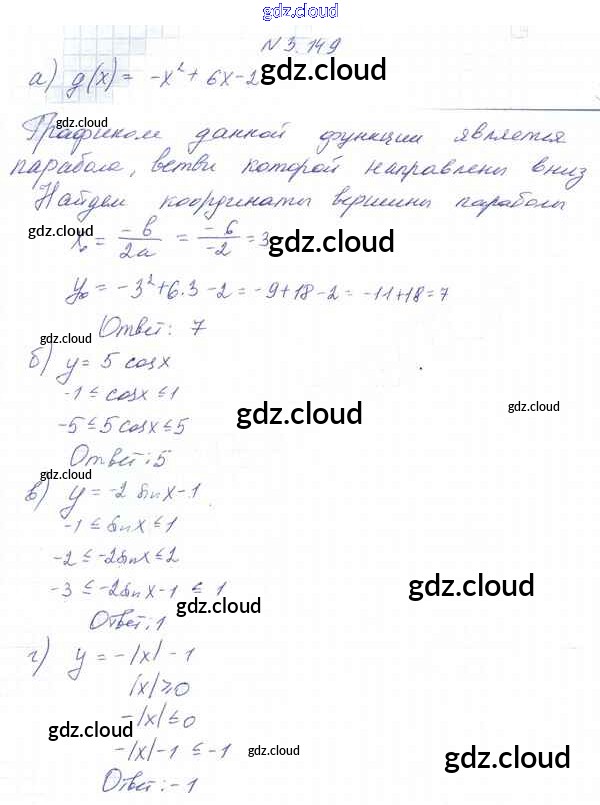 gdz.cloud
N 3.149
а) g(x) = -x² + 6x - 2
gdz.cloud
gdz.cloud
Графиком данной функции является
парабола, ветви которой направлены вниз
Найдем координаты вершины параболы
gdz.cloud
x₀ = -b/2a = -6/-2 = 3
gdz.cloud
y₀ = -3² + 6·3 - 2 = -9 + 18 - 2 = -11 + 18 = 7
Ответ: 7
gdz.cloud
б) y = 5 cosx
-1 ≤ cosx ≤ 1
gdz.cloud
gdz.cloud
-5 ≤ 5 cosx ≤ 5
Ответ: 5
gdz.cloud
в) y = -2 sinx - 1
-1 ≤ sinx ≤ 1
-2 ≤ -2sinx ≤ 2
-3 ≤ -2sinx - 1 ≤ 1
gdz.cloud
gdz.cloud
Ответ: 1
г) y = -|x| - 1
|x| ≥ 0
-|x| ≤ 0
gdz.cloud
-|x| - 1 ≤ -1
gdz.cloud
gdz.cloud
Ответ: -1